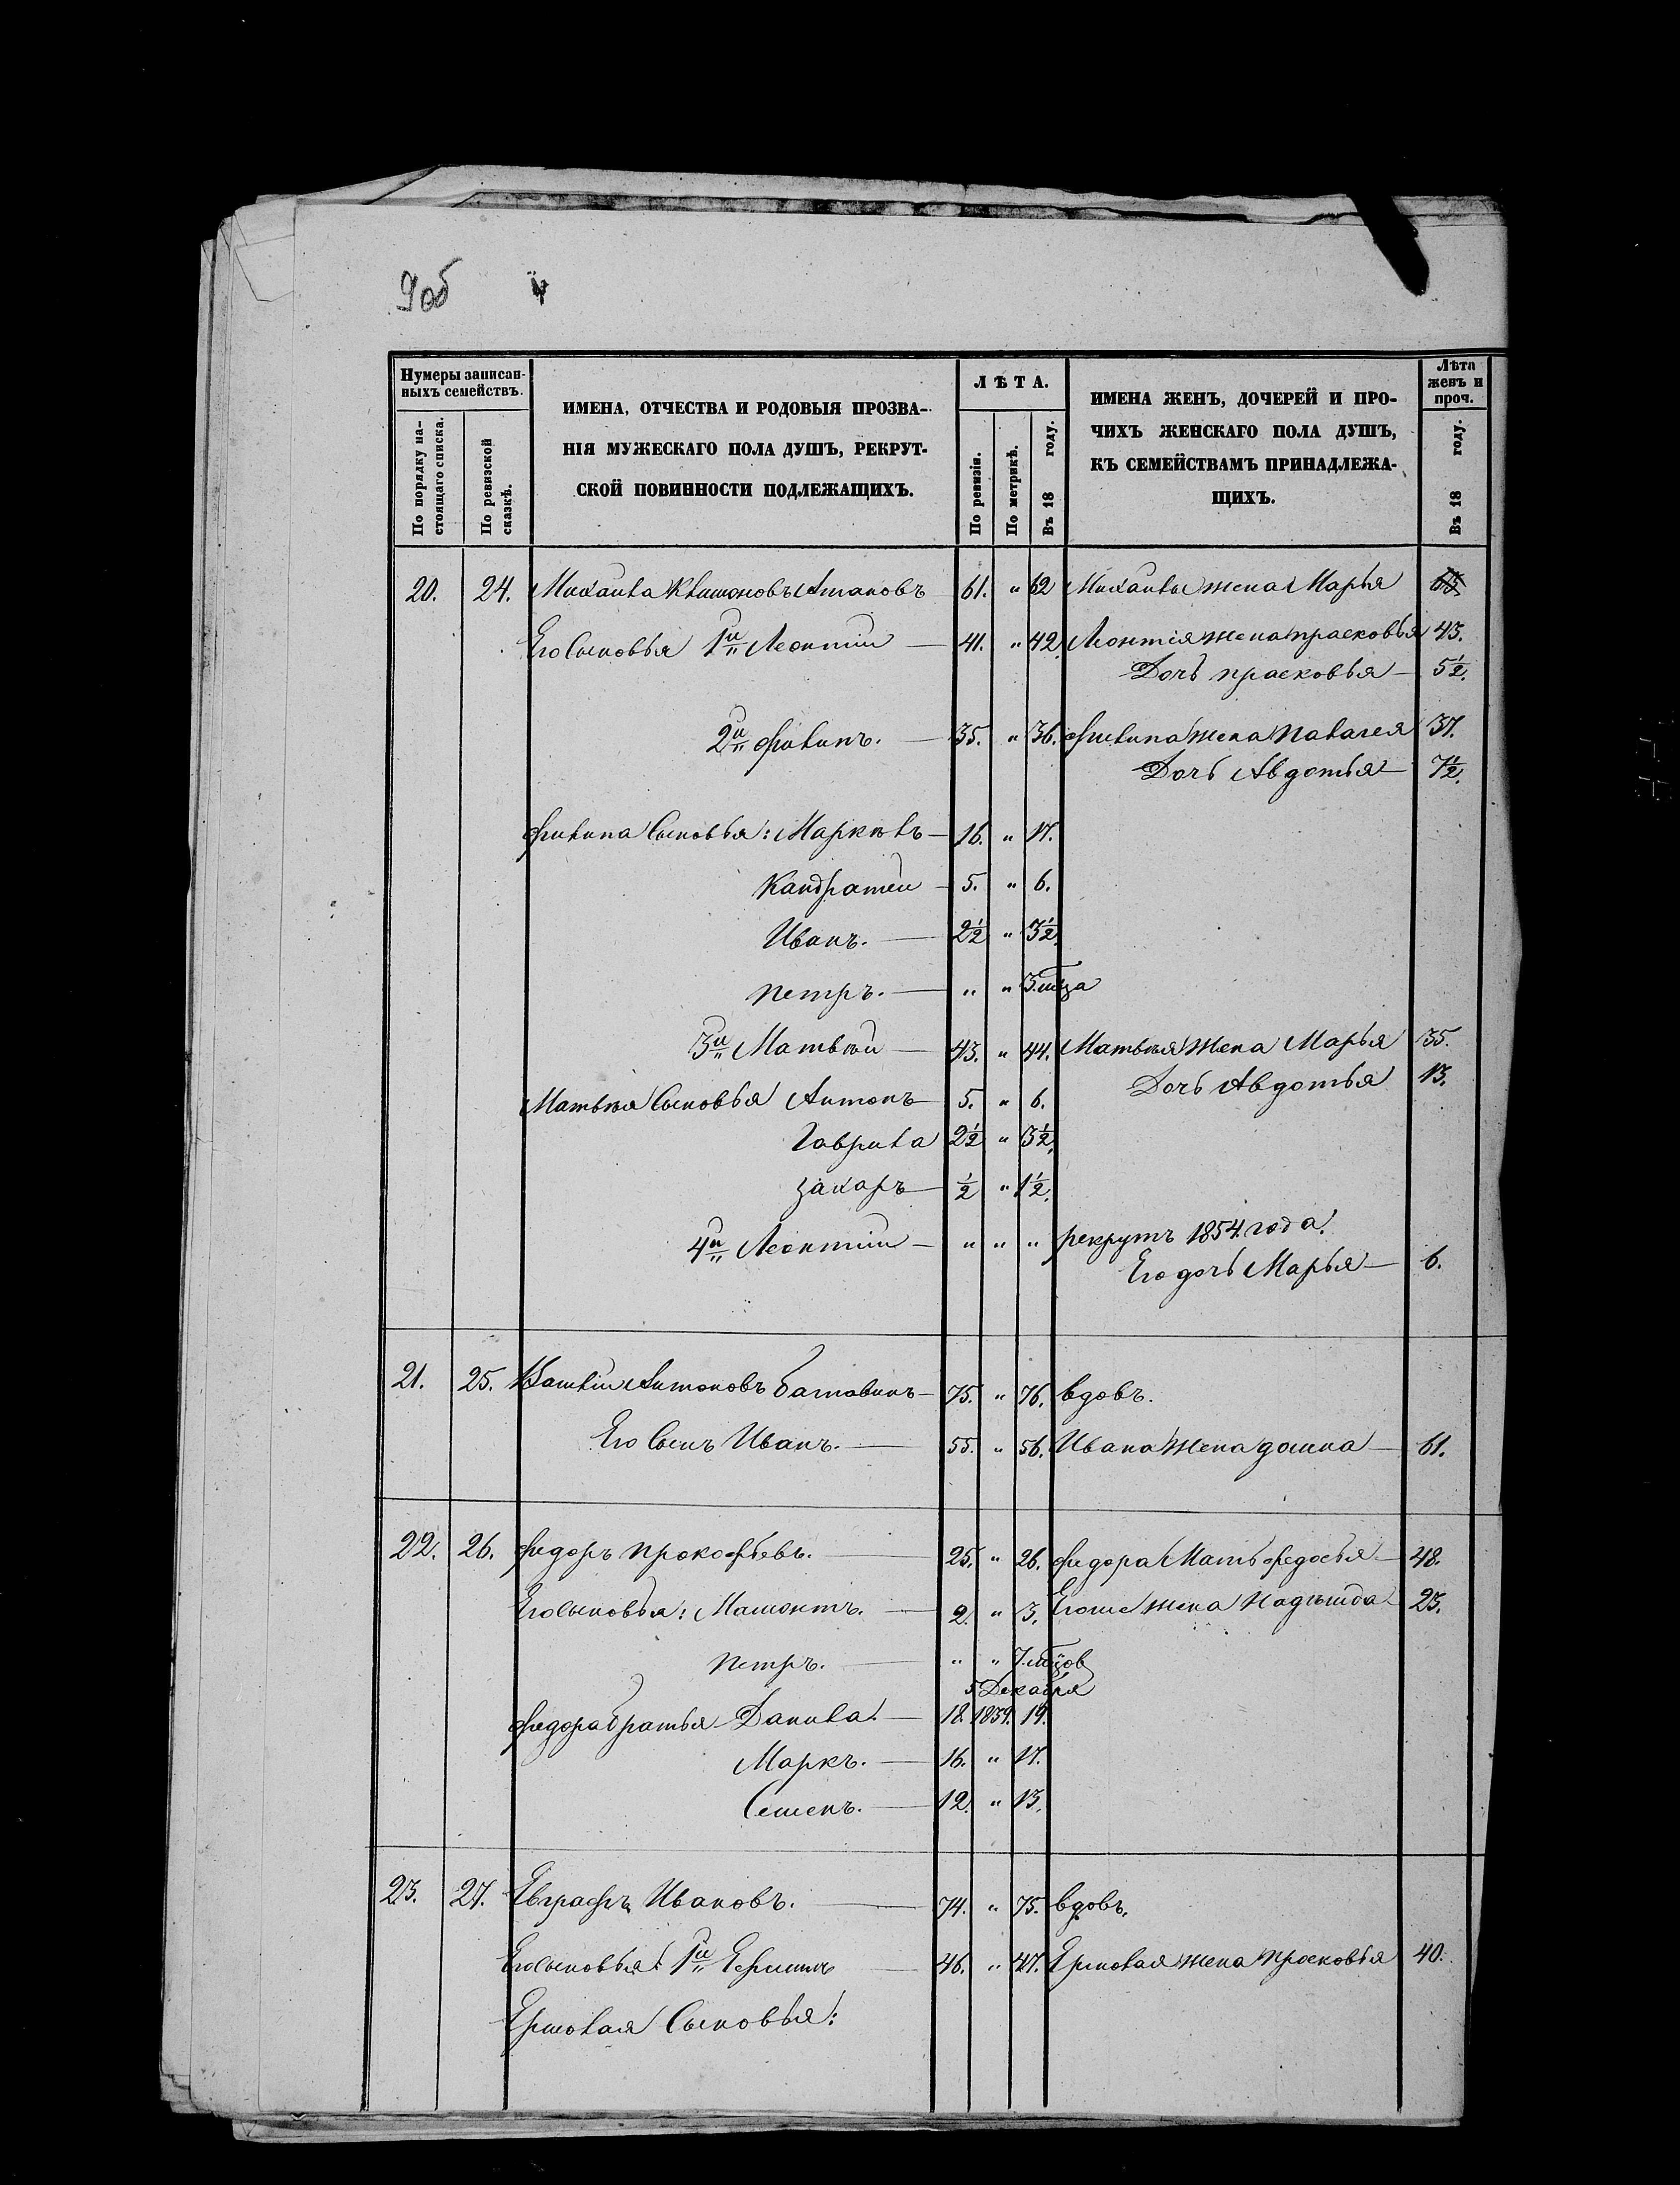 9об 4
Нумеры записан-
ныхъ семействъ.
По порядку на-
стоящаго списка.
По ревизской
сказкѣ.
ИМЕНА, ОТЧЕСТВА И РОДОВЫЯ ПРОЗВА-
НІЯ МУЖЕСКАГО ПОЛА ДУШЪ, РЕКРУТ-
СКОЙ ПОВИННОСТИ ПОДЛЕЖАЩИХЪ.
ЛѢТА.
По ревизіи.
По метрикѣ.
Въ 18 году.
ИМЕНА ЖЕНЪ, ДОЧЕРЕЙ И ПРО-
ЧИХЪ ЖЕНСКАГО ПОЛА ДУШЪ,
КЪ СЕМЕЙСТВАМЪ ПРИНАДЛЕЖА-
ЩИХЪ.
Лѣта
женъ и
проч.
Въ 18 году.
20. 24. Михаила 61. " 62 Михаилы жена Марья
Его Сыновья 1й Леонтій 41. " 42 Леонтія жена прасковья 43.
Дочь прасковья 5½.
2й филипъ. 35. " 36. филипа жена Палагея 37.
Дочь Авдотья 7½.
филипа Сыновья: Маркѣлъ 16. " 17.
Кандратей 5. " 6.
Иванъ. 2½ " 3½.
петръ. " " 3. мца
3й Матвѣй 43. " 44. Матвѣя жена Марья 35.
Дочь Авдотья 13.
Матвѣя Сыновья Антонъ 5. " 6.
Гаврила 2½ " 3½.
захаръ ½ " 1½.
4й Леонтій " " " рекрутъ 1854. года.
Его дочь Марья 6.
21. 25. Антоновъ 75. " 76. вдовъ.
Его Сынъ Иванъ. 55. " 56. Ивана жена домна 61.
22. 26. федоръ прокофьевъ. 25. " 26. федора Мать федосья 48.
Его сыновья: Мамонтъ. 2. " 3. Егоже жена Надѣжда 25.
петръ. " " 7. мцов
5 Декабря
федора братья Данила. 18. 1839. 19.
Маркъ. 16. " 17.
Семенъ. 12. " 13.
23. 27. Евграфъ Ивановъ. 74. " 75. вдовъ.
Его сыновья: 1й 46. " 47. Ермолая жена прасковья 40.
Ермолая Сыновья: